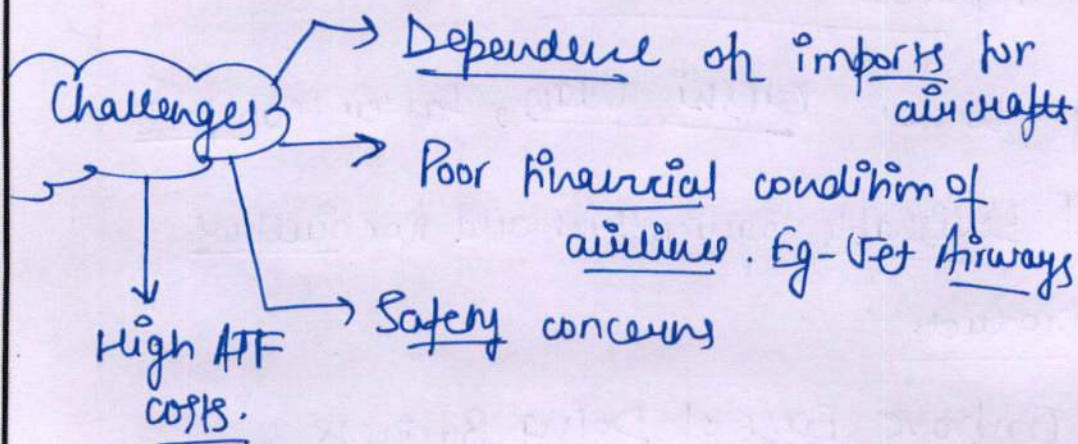 Challenges
Dependence on imports for
aircrafts
Poor financial condition of
airlines. Eg - Jet Airways
Safety concerns
High ATF
costs.